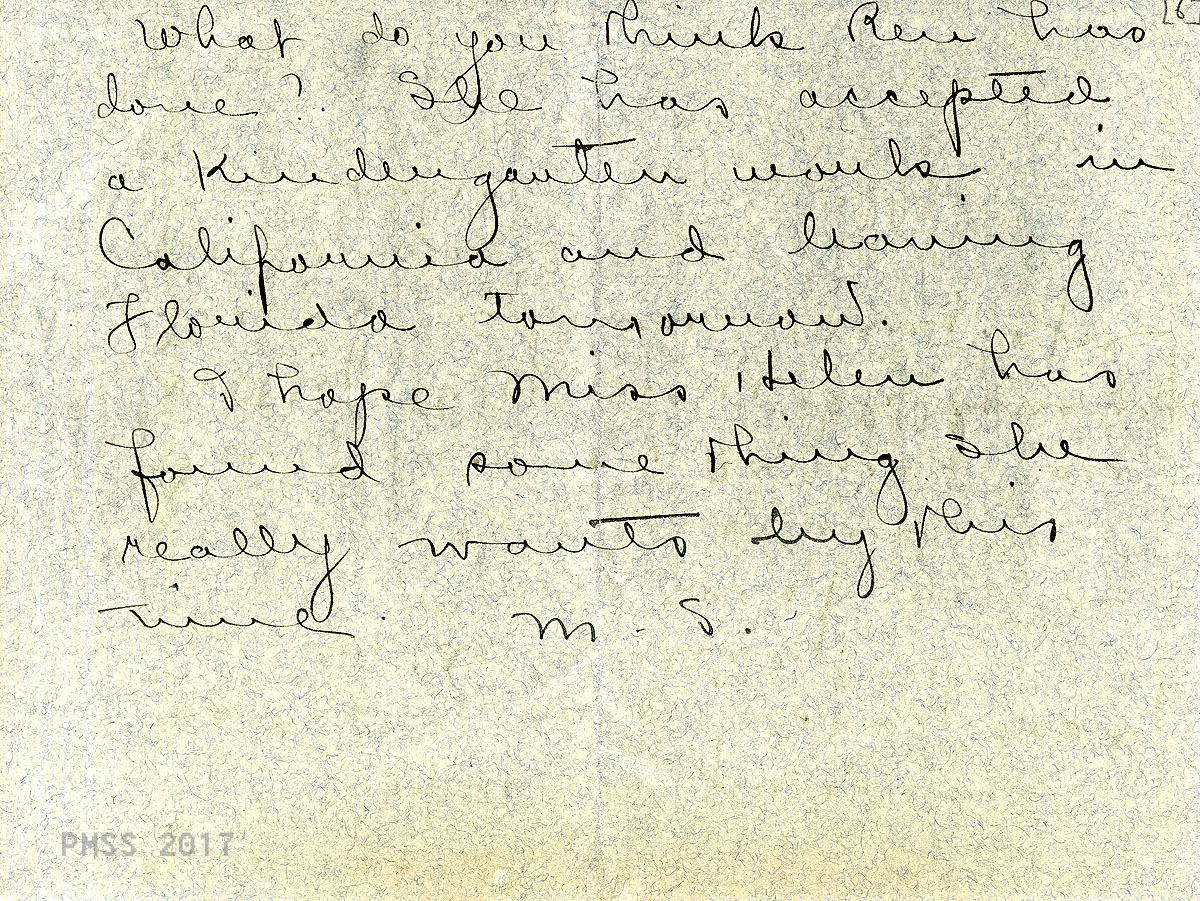 [6
What do you think Reu has
done? She has accepted
a Kindergarten work in
California and leaving
Florida tomorrow.
I hope Miss Helen has
found some thing she
really wants by this
time. M. S.
PMSS 2017